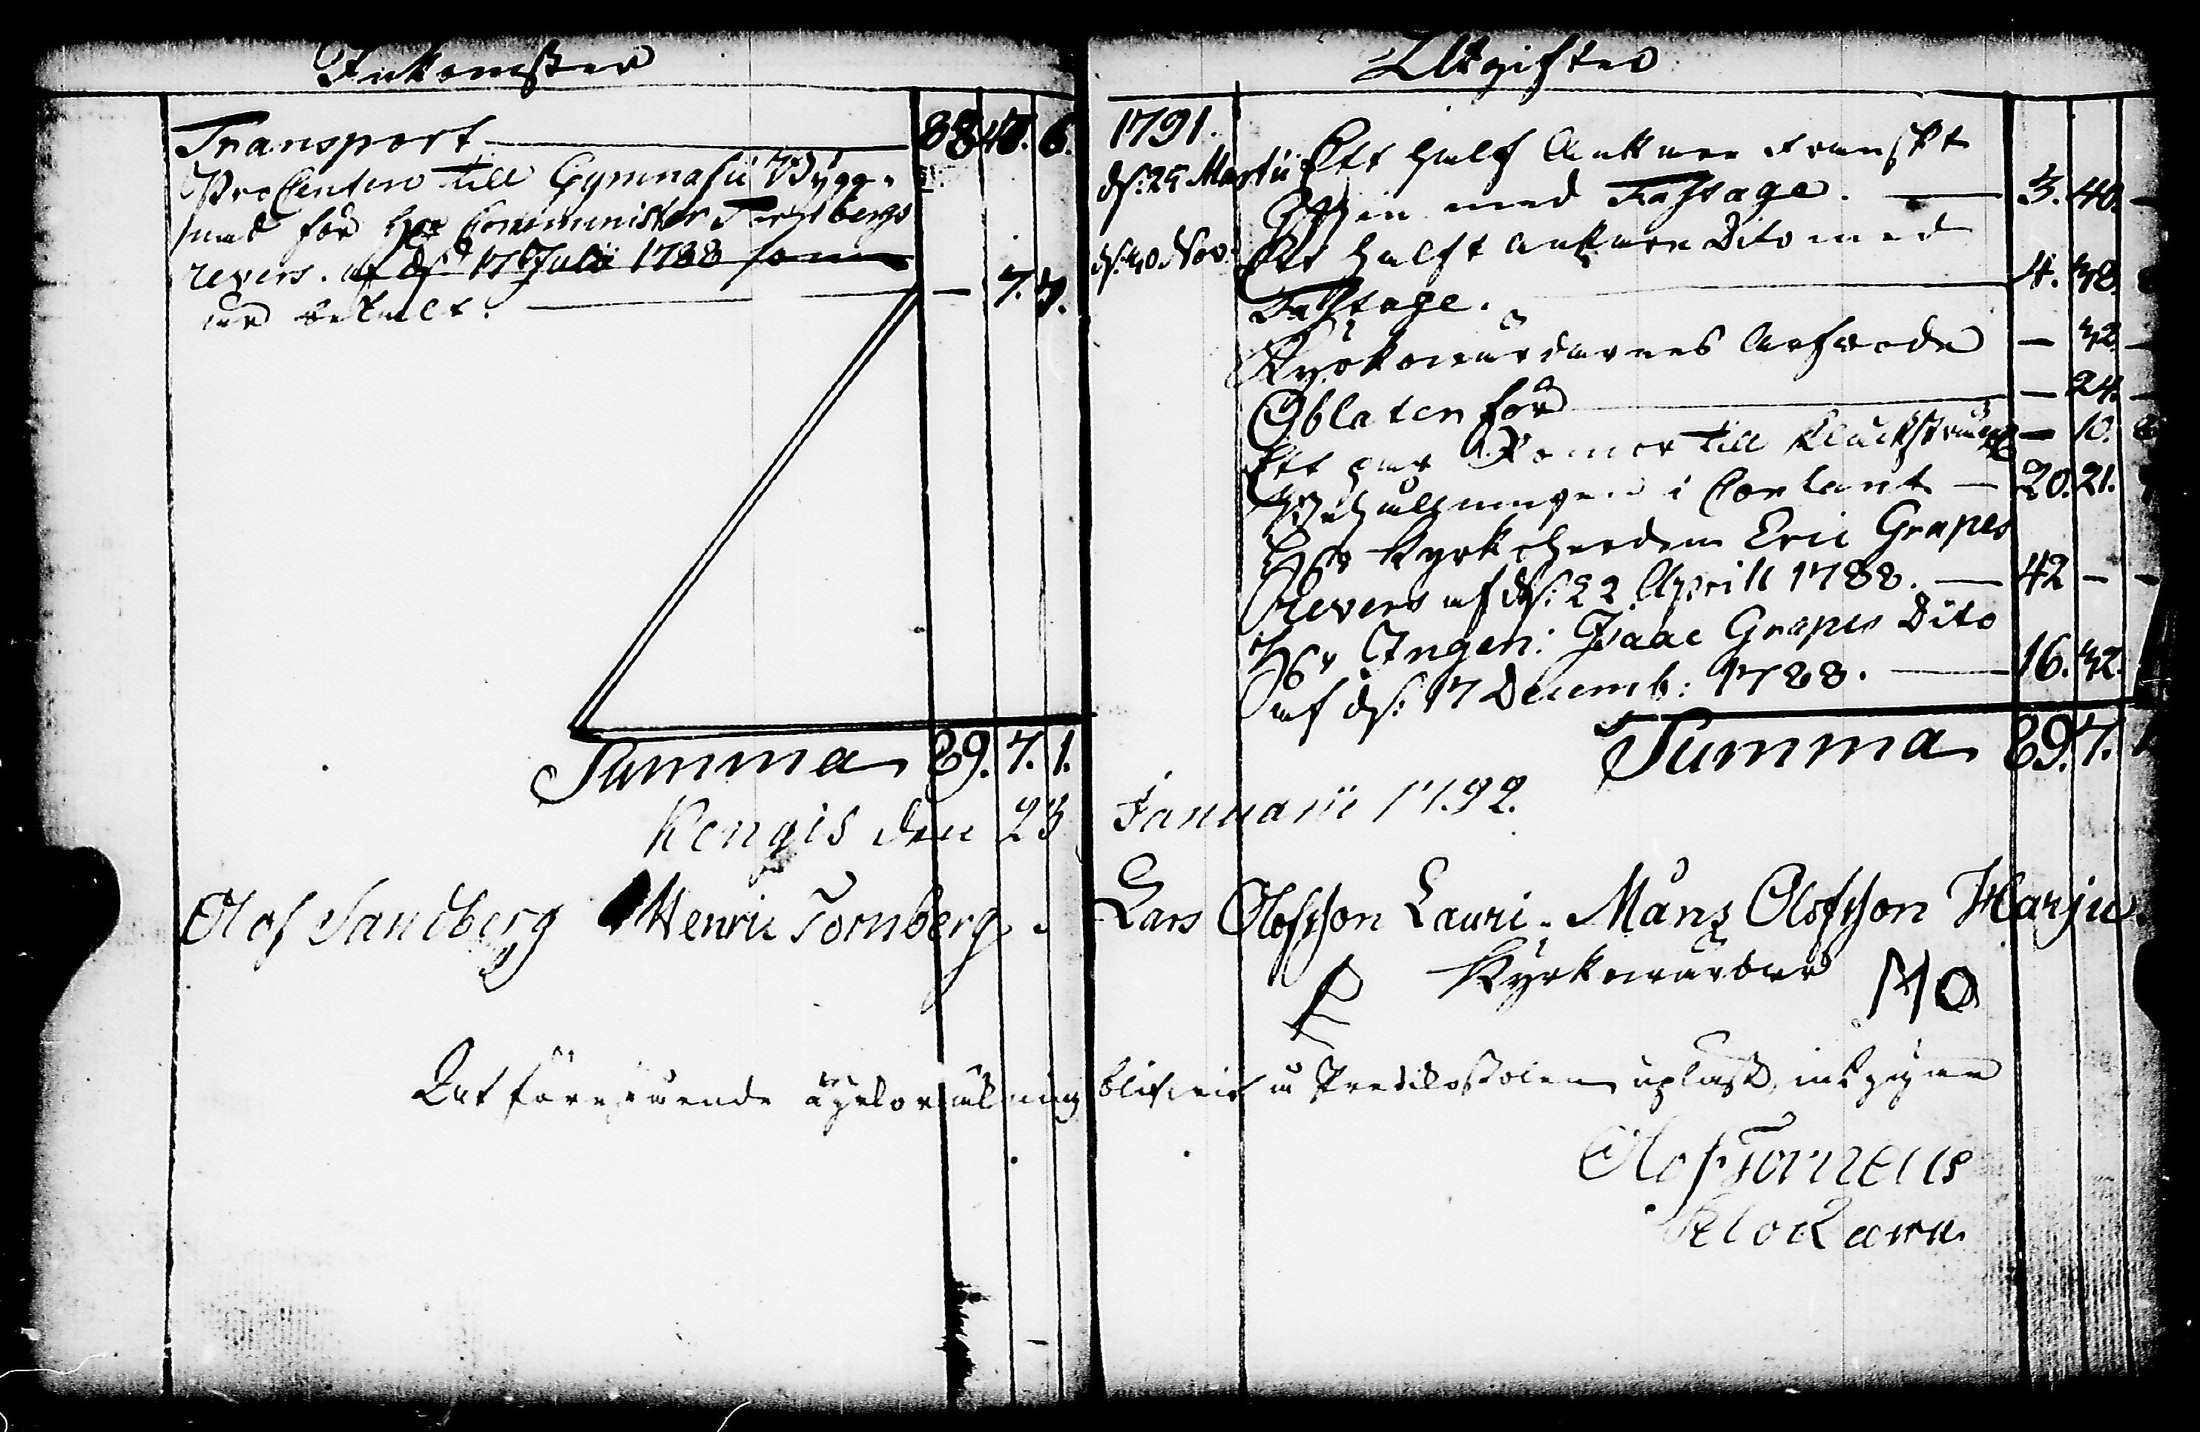 Inkomster
Transport 88 47. 6.
ProCenten till Gymnasii Bygg-
nad för Hr Comminister Forsbergs
revers. af d. 17 Julii 1788 som
är betalt. — 7. 7.
Summa 89. 7. 1.
Utgifter
1791.
d: 29 Martii Ett half Ankare Franskt
Win med Fastage. 3. 40. —
d: 40 Nov: Ett halft ankare Dito med
Fastage. 4. 38.
Kyrkowärdarnes Arfwode — 32. —
Oblater för — 24. —
Ett par Remor till Kläckstrång — 10.
Behållningen i Contant — 20. 21.
Hr Kyrkoherden Eric Grapes
revers af d: 22 Aprill 1788. 42 — —
Hr Ingen: Isaac Grapes Dito
af d: 17 Decemb: 1788. 16. 32.
Summa 89. 7. 1
Kengis den 23 Januarii 1792.
Olof Sandberg Henric Tornberg. Lars Olofsson Lauri. Måns Olofsson Harju.
Kyrkowärdar MO
Det förestående Räkning blifwit å Predikostolen upläst, intygar
Olof Torneus
Klockare